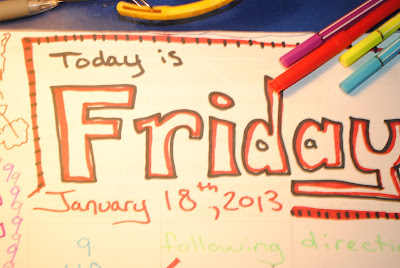 Today is
Friday
January 18th, 2013
9 following directio